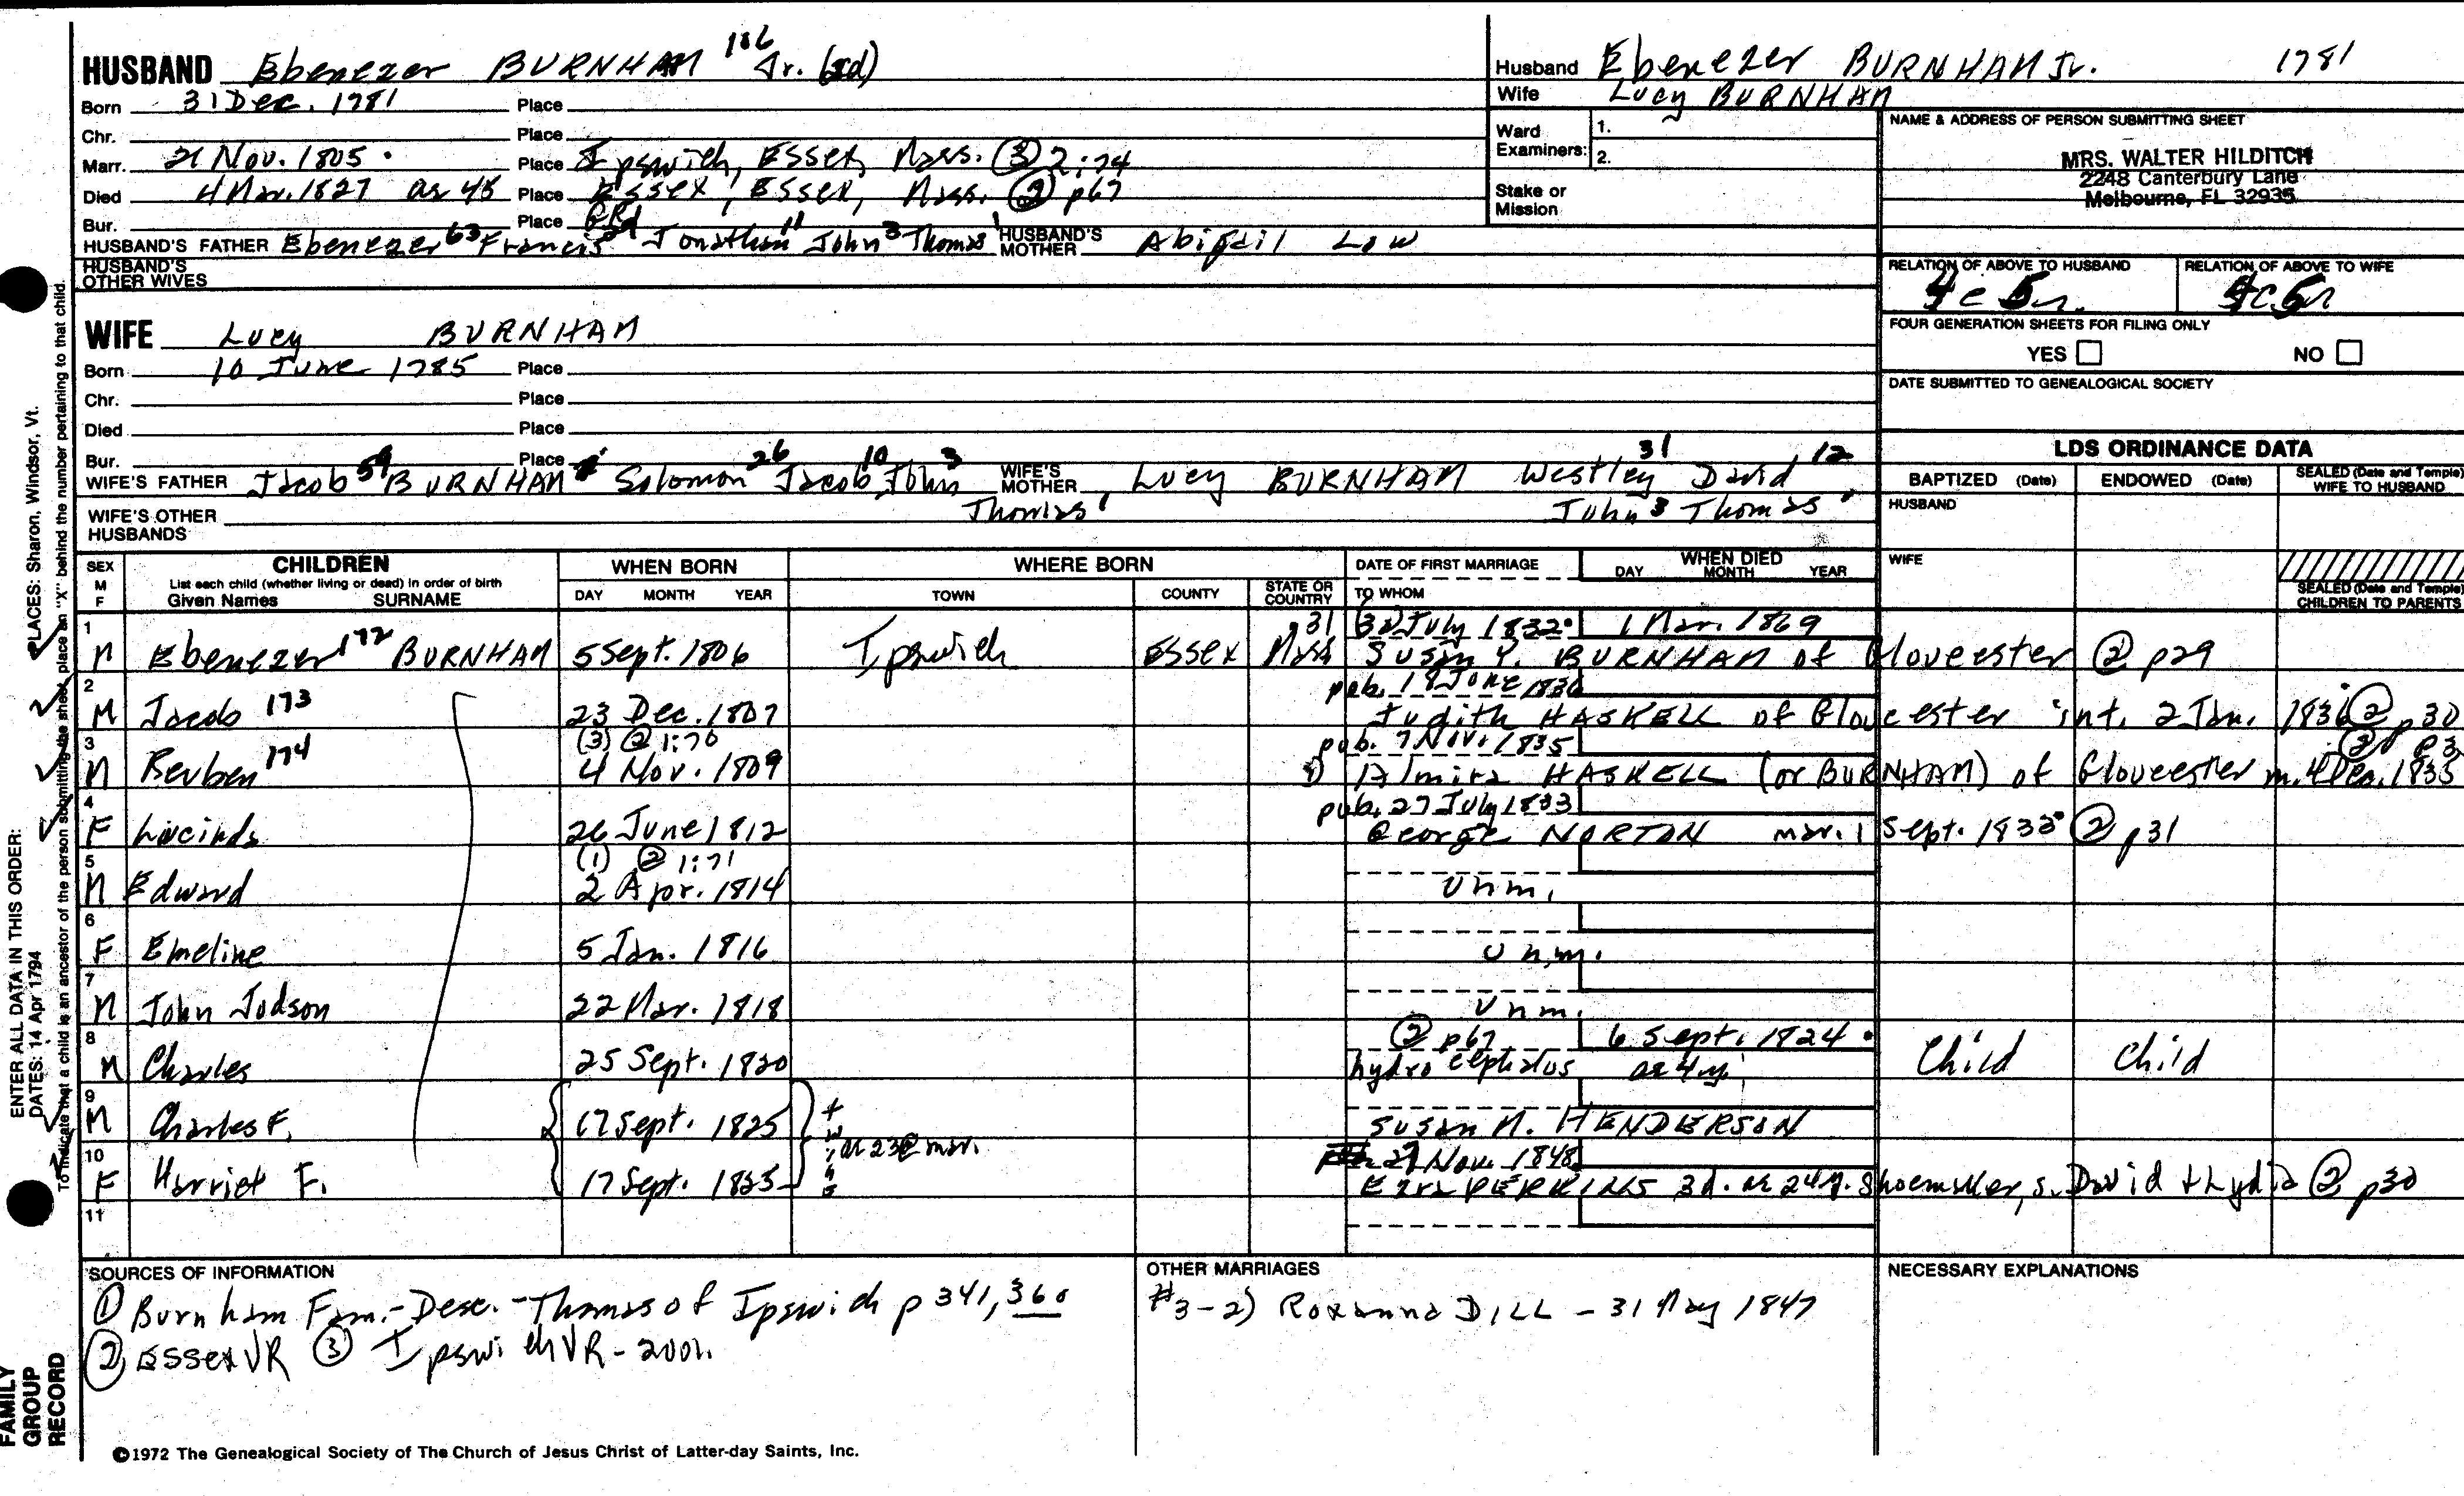 HUSBAND Ebenezer BURNHAM 186 Jr. (3d)
Born 31 Dec. 1781 Place
Chr. Place
Marr. 21 Nov. 1805 Place Ipswich, Essex, Mass. (3) 2:74
Died 4 Mar. 1827 ae 45 Place Essex, Essex, Mass. (2) p67
Bur. Place GRd
HUSBAND'S FATHER Ebenezer 63 Francis Jonathan 11 John 3 Thomas 1 HUSBAND'S MOTHER Abigail Low
HUSBAND'S OTHER WIVES
WIFE Lucy BURNHAM
Born 10 June 1785 Place
Chr. Place
Died Place
Bur. Place
WIFE'S FATHER Jacob 59 BURNHAM Solomon 26 Jacob 10 John 3 Thomas 1 WIFE'S MOTHER Lucy BURNHAM Westley 31 David 12 John 3 Thomas 1
WIFE'S OTHER HUSBANDS
Husband Ebenezer BURNHAM Jr. 1781
Wife Lucy BURNHAM
Ward Examiners: 1.
2.
Stake or Mission
NAME & ADDRESS OF PERSON SUBMITTING SHEET
MRS. WALTER HILDITCH
2248 Canterbury Lane
Melbourne, FL 32935
RELATION OF ABOVE TO HUSBAND RELATION OF ABOVE TO WIFE
4c5r 4c5r
FOUR GENERATION SHEETS FOR FILING ONLY
YES NO
DATE SUBMITTED TO GENEALOGICAL SOCIETY
LDS ORDINANCE DATA
BAPTIZED (Date) ENDOWED (Date) SEALED (Date and Temple) WIFE TO HUSBAND
HUSBAND
WIFE
SEALED (Date and Temple) CHILDREN TO PARENTS
SEX M F CHILDREN WHEN BORN WHERE BORN DATE OF FIRST MARRIAGE WHEN DIED
List each child (whether living or dead) in order of birth DAY MONTH YEAR
Given Names SURNAME DAY MONTH YEAR TOWN COUNTY STATE OR COUNTRY TO WHOM
1 31 30 July 1832 1 Mar. 1869
M Ebenezer 172 BURNHAM 5 Sept. 1806 Ipswich Essex Mass Susan Y. BURNHAM of Gloucester (2) p29
2 pub. 18 June 1836
M Jacob 173 23 Dec. 1807 Judith HASKELL of Gloucester int. 2 Jan. 1836 (2) p30
3 (3) (2) 1:70 pub. 7 Nov. 1835 (2) p3
M Reuben 174 4 Nov. 1809 1) Almira HASKELL (or BURNHAM) of Gloucester m. 4 Dec. 1835
4 pub. 27 July 1833
F Lucinda 26 June 1812 George NORTON mar. 1 Sept. 1833 (2) p31
5 (1) (2) 1:71
M Edward 2 Apr. 1814 Unm.
6
F Emeline 5 Jan. 1816 Unm.
7
M John Judson 22 Mar. 1818 Unm.
8 (2) p67 6 Sept. 1824
M Charles 25 Sept. 1820 hydrocephalus ae 4y. Child Child
9
M Charles F. 17 Sept. 1825 twins Susan M. HENDERSON
10 ae 23 @ mar. 27 Nov. 1848
F Harriet F. 17 Sept. 1825 Ezra PERKINS 3d. ae 24y. Shoemaker, s. David & Lydia (2) p30
11
SOURCES OF INFORMATION
(1) Burnham Fam. - Desc. - Thomas of Ipswich p 341, 360
(2) Essex VR (3) Ipswich VR
OTHER MARRIAGES
#3-2) Roxanna DILL - 31 May 1847
NECESSARY EXPLANATIONS
©1972 The Genealogical Society of The Church of Jesus Christ of Latter-day Saints, Inc.
FAMILY GROUP RECORD
ENTER ALL DATA IN THIS ORDER:
DATES: 14 Apr 1794
PLACES: Sharon, Windsor, Vt.
To indicate that a child is an ancestor of the person submitting the sheet, place an "X" behind the number pertaining to that child.